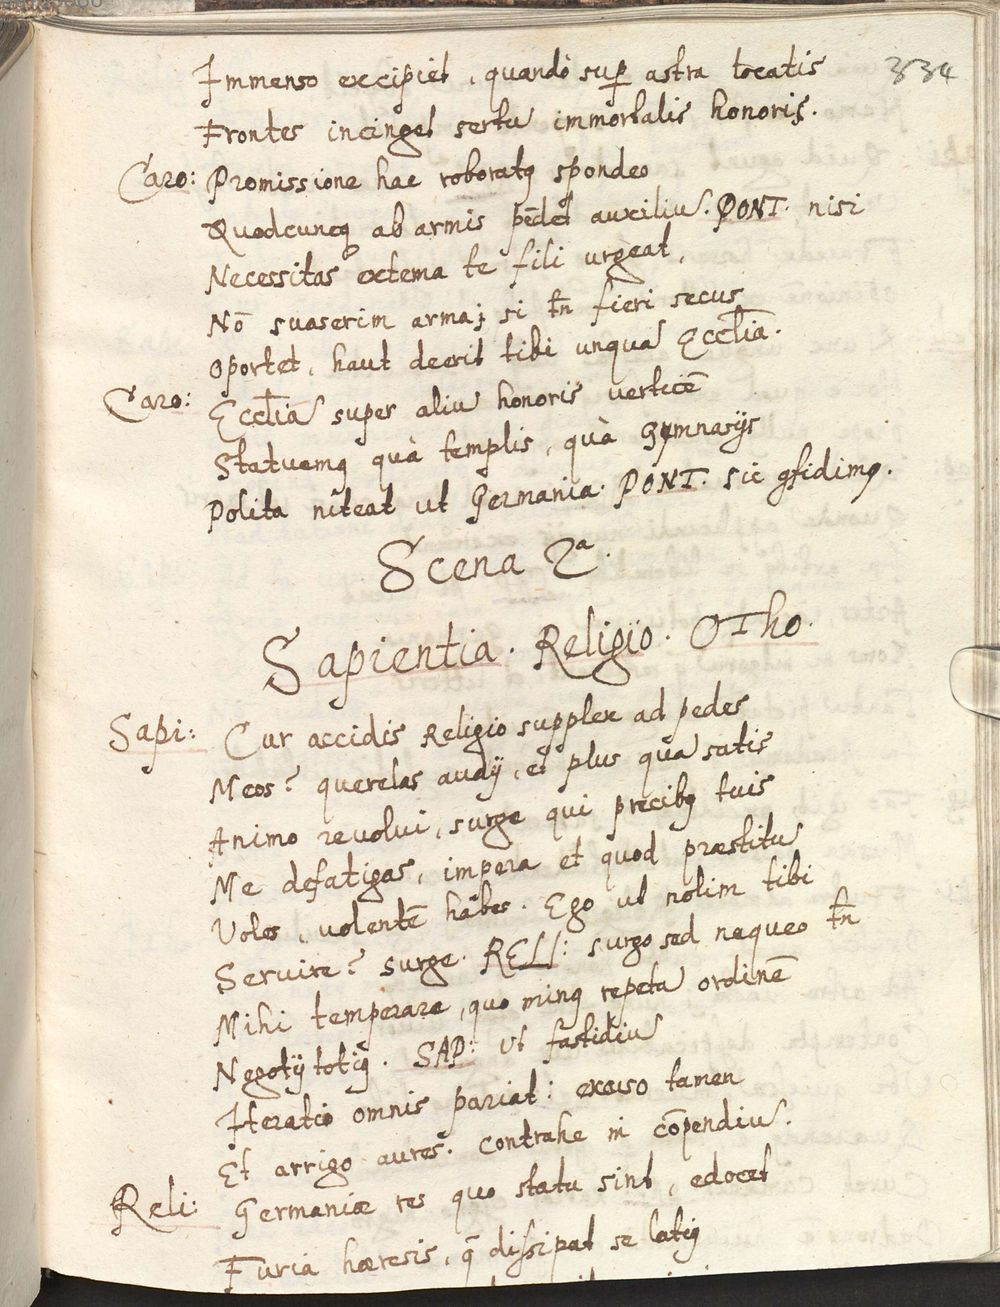 334
Immenso excipiet, quando sup̱ astra locatis
Frontes incinget sertu immortalis honoris.
Caro: Promissione hac roboratꝗ spondeo
Quodcuncꝗ ab armis pēdet auxiliū. PONT. nisi
Necessitas extema te fili urgeat,
Nō suaserim arma; si tn̄ fieri secus
oportet, haut deerit tibi unquā Eccl̄iā.
Caro: Eccl̄iā super aliū honoris verticē
Statuemꝗ quà templis, quà Gymnasijs
Polita niteat ut Germania. PONT. sic ꝯfidimꝗ.
Scena 2ª.
Sapientia. Religio. OTho.
Sapi: Cur accidis Religio supplex ad pedes
Meos? querelas audij, et plus quā satis
Animo revolui, surge qui precibꝗ tuis
Me defatigas, impera et quod præstitū
Voles, volentē hābes. Ego ut nolim tibi
Servire? surge. RELI: surgo sed nequeo tn̄
Mihi temperare, quo minꝗ repetā ordinē
Negotij totiꝗ. SAP: Ut fastidiū
Iteratio omnis pariat: excuso tamen
Et arrigo aures. Contrahe in cōpendiū.
Reli: Germaniæ res quo statu sint, edocet
Furia hæresis, q̄ dissipat se latiꝗ